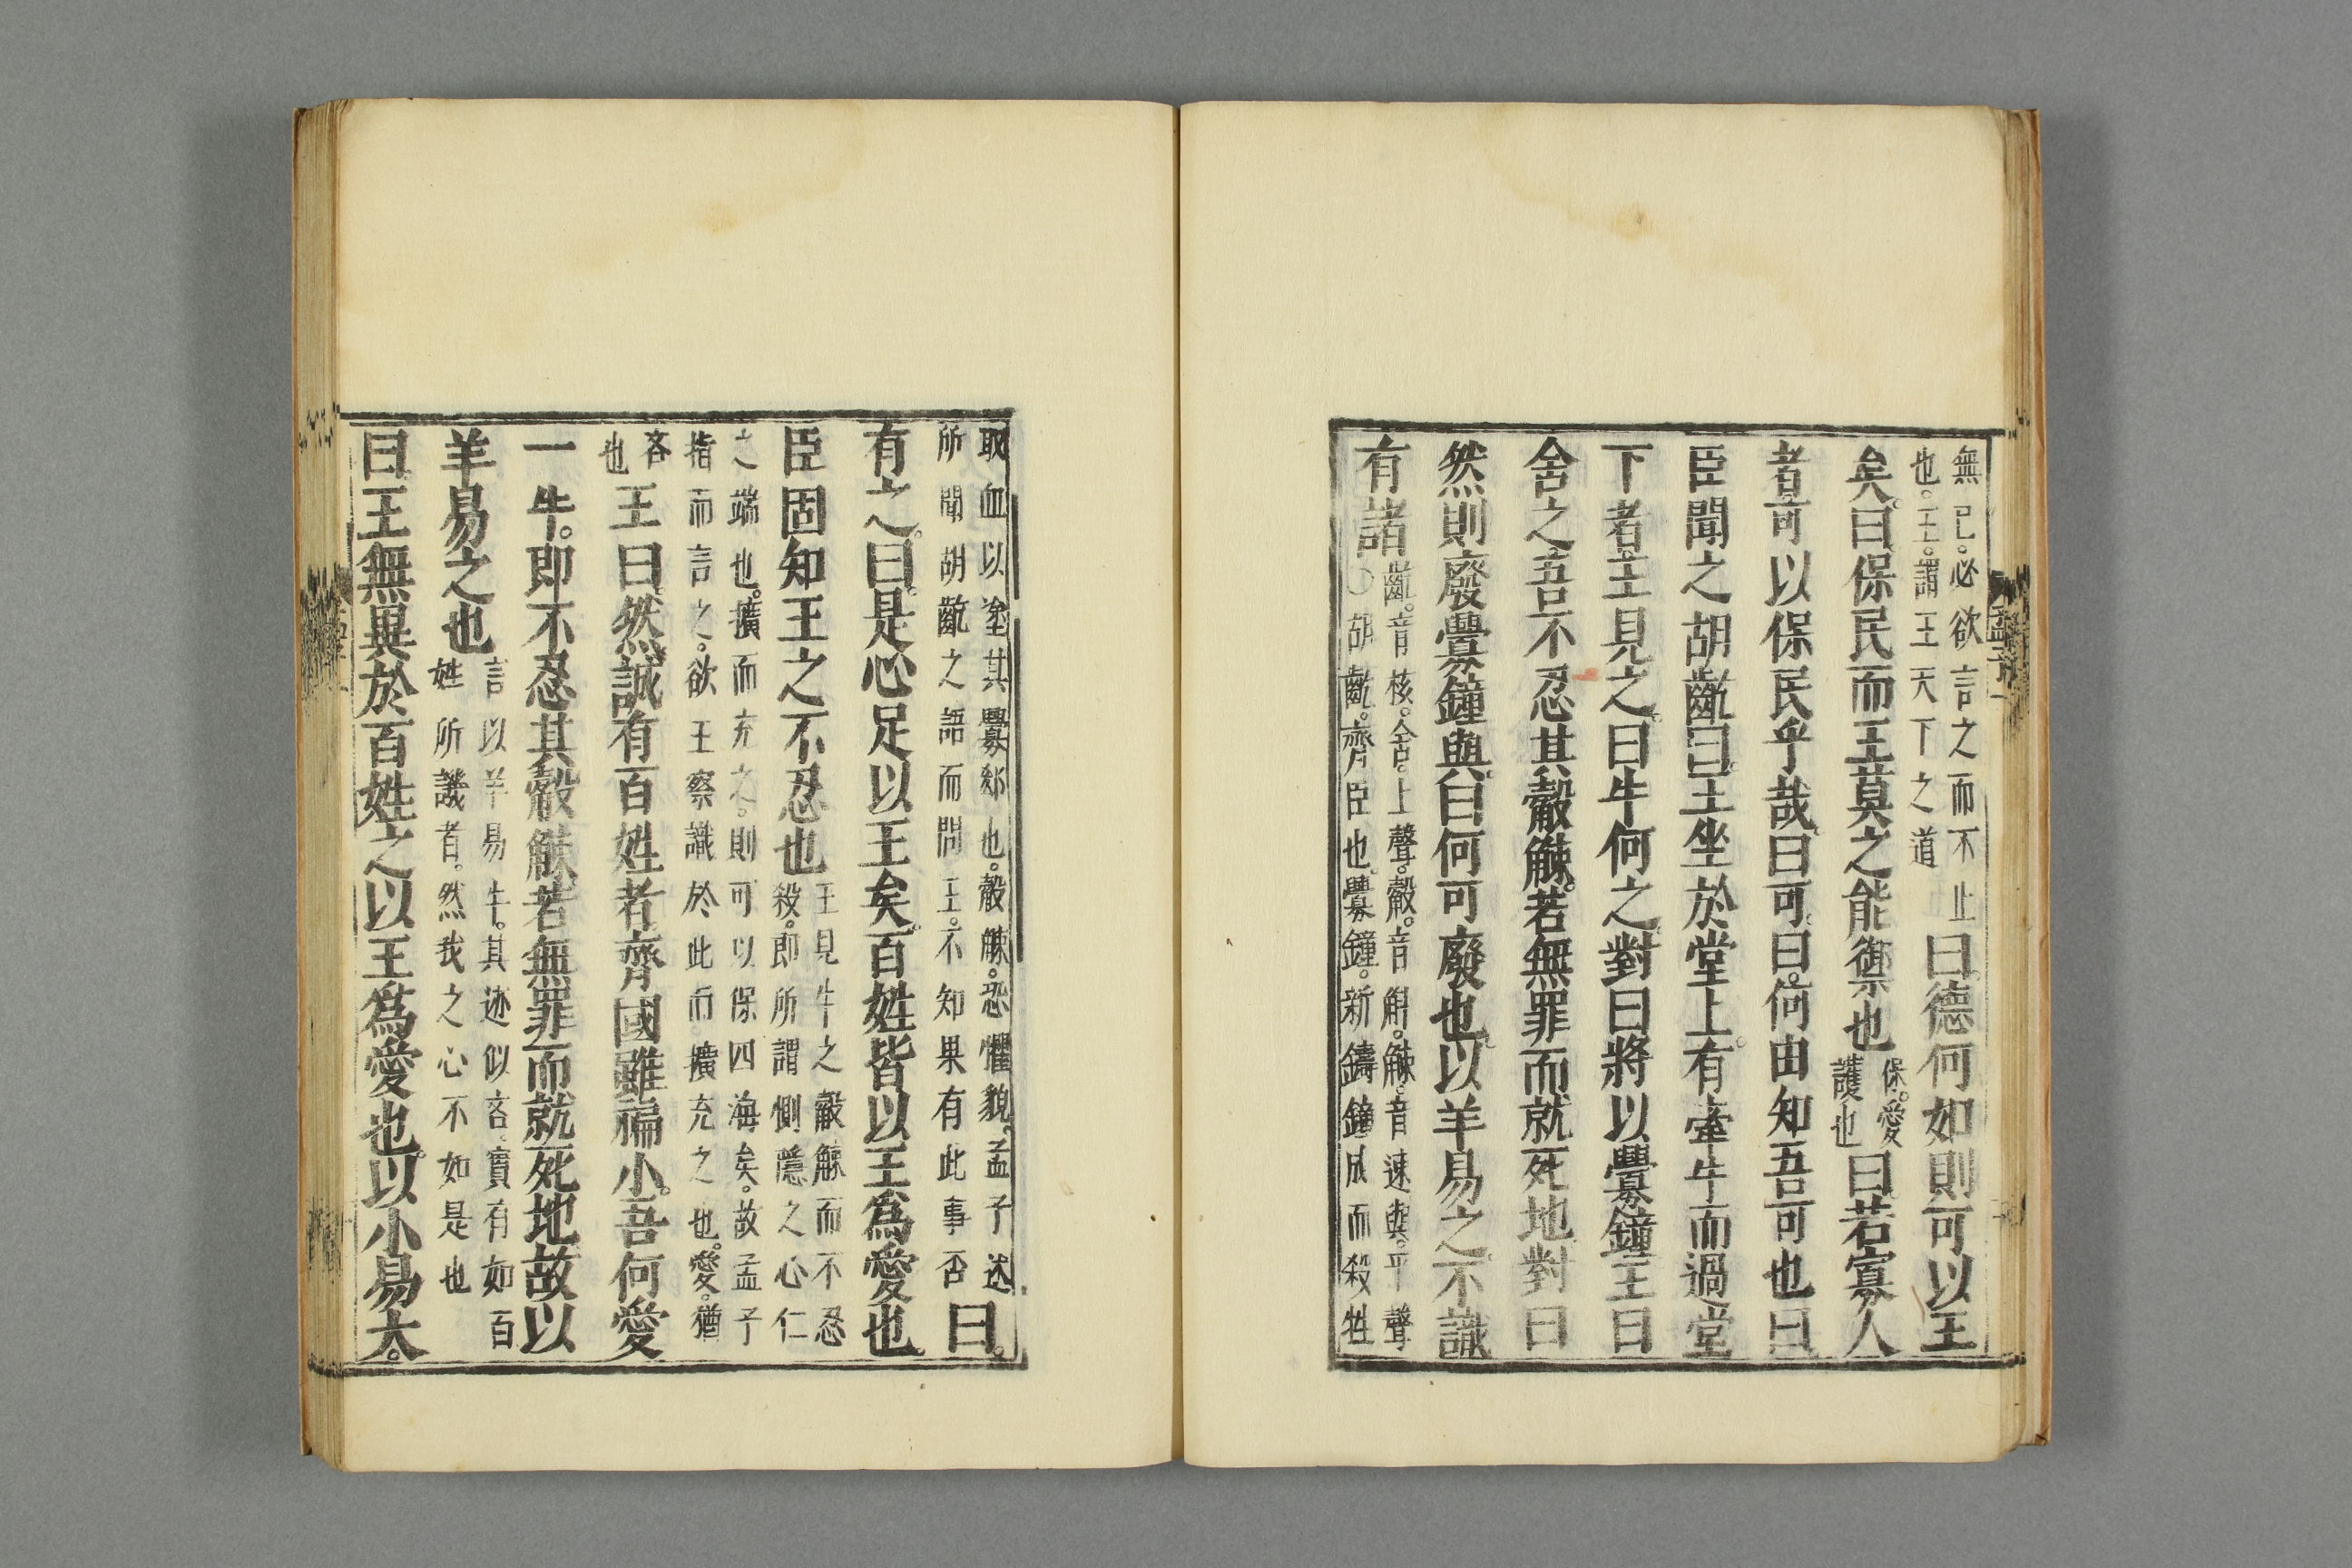 無已。必欲言之而不止
也。王。謂王天下之道
曰。德何如則可以王
矣。曰保民而王莫之能禦也
保。愛
護也
曰若寡人
者可以保民乎哉。曰可。曰。何由知吾可也曰
臣聞之胡齕曰。王坐於堂上。有牽牛而過堂
下者王見之。曰牛何之。對曰將以釁鐘王曰
舍之吾不忍其觳觫。若無罪而就死地對曰
然則廢釁鐘與。曰何可廢也。以羊易之。不識
有諸
齕。音核。舍。上聲。觳。音斛。觫。音速與。平聲
〇胡齕。齊臣也。釁鐘。新鑄鐘成而殺牲
取血以塗其釁郄也。觳觫。恐懼貌。孟子述
所聞胡齕之語而問王。不知果有此事否
曰。
有之。曰。是心足以王矣。百姓皆以王爲愛也。
臣固知王之不忍也
王見牛之觳觫而不忍
殺。即所謂惻隱之心仁
之端也。擴而充之。則可以保四海矣。故孟子
指而言之。欲王察識於此而擴充之也。愛。猶
吝
也
王曰。然。誠有百姓者。齊國雖褊小。吾何愛
一牛。即不忍其觳觫若無罪而就死地。故以
羊易之也
言以羊易牛。其迹似吝。實有如百
姓所譏者。然我之心不如是也
曰王無異於百姓之以王爲愛也。以小易大。